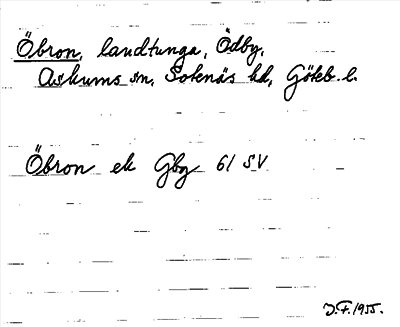 Öbron, landtunga, Ödby,
Askums sn, Sotenäs hd, Göteb. l.
Öbron ek Gbg 61 SV
J.F. 1955.